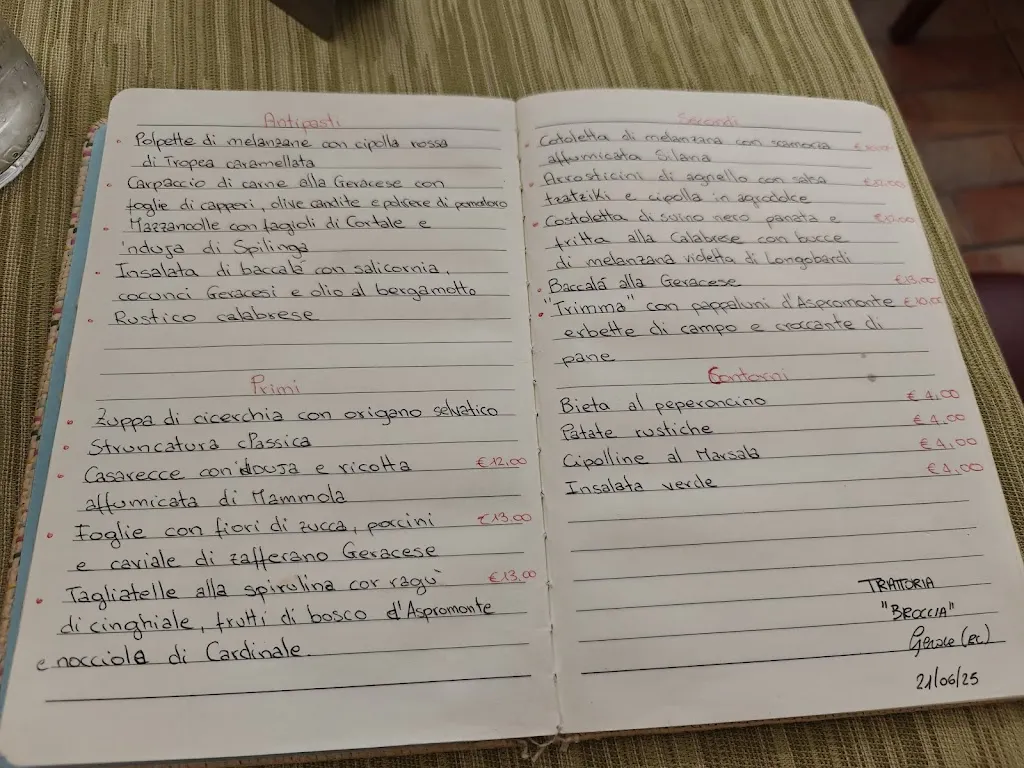 Antipasti
Polpette di melanzane con cipolla rossa
di Tropea caramellata
Carpaccio di carne alla Geracese con
foglie di capperi, olive candite e polvere di pomodoro
Mazzancolle con fagioli di Cortale e
'nduja di Spilinga
Insalata di baccalà con salicornia,
cocunci Geracesi e olio al bergamotto
Rustico calabrese
Primi
Zuppa di cicerchia con origano selvatico
Struncatura classica
Casarecce con 'douja e ricotta € 12,00
affumicata di Mammola
Foglie con fiori di zucca, porcini € 13,00
e caviale di zafferano Geracese
Tagliatelle alla spirulina con ragù € 13,00
di cinghiale, frutti di bosco d'Aspromonte
e nocciola di Cardinale.
Secondi
Cotoletta di melanzana con scamorza
affumicata Silana
Arrosticini di agnello con salsa
tzatziki e cipolla in agrodolce
Costoletta di suino nero panata e
fritta alla Calabrese con bucce
di melanzana violetta di Longobardi
Baccalà alla Geracese € 13,00
"Trimma" con pappaluni d'Aspromonte € 10,00
erbette di campo e croccante di
pane
Contorni
Bieta al peperoncino € 4,00
Patate rustiche € 4,00
Cipolline al Marsala € 4,00
Insalata verde € 4,00
TRATTORIA
"BROCCIA"
Gerace (RC)
21/06/25